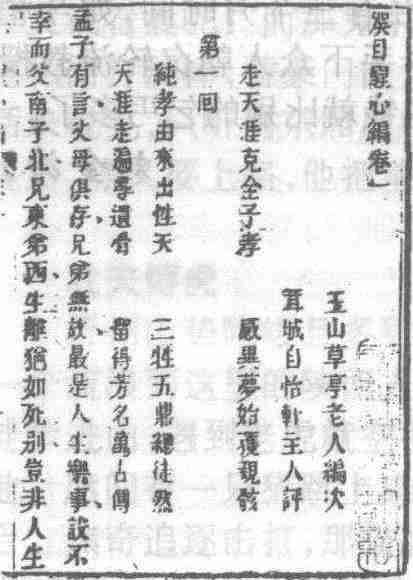 娛目醒心編卷一
玉山草亭老人編次
茸城自怡軒主人評
第一回
走天涯克全子孝　感異夢始獲親骸
純孝由來出性天　三牲五鼎總徒然
天涯走遍尋遺骨　留得芳名萬古傳
孟子有言父母俱存兄弟無故最是人生樂事設不
幸而父南子北兄東弟西生離猶如死别豈非人生